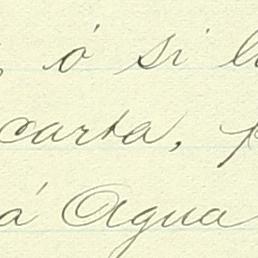 ó si
carta,
á Agua